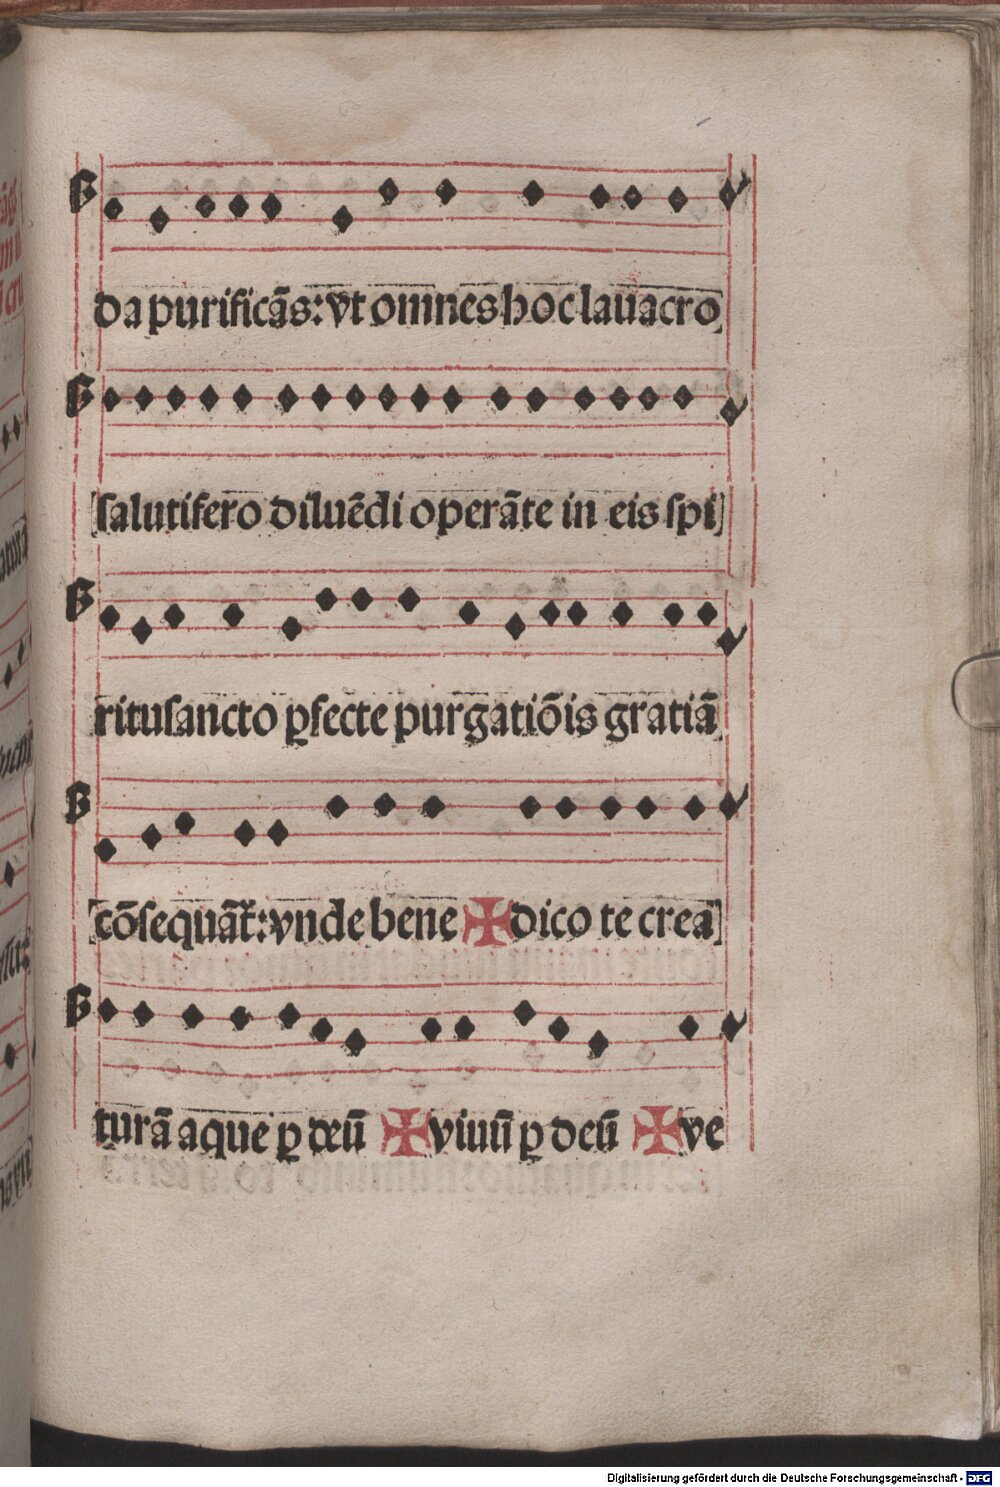 da purificãs: vt omnes hoc lauacro
ſalutifero diluẽdi operãte in eis ſpi
rituſancto ꝑfecte purgatiõis gratiã
cõſequãt᷑: vnde bene ✠ dico te crea
turã aque ꝑ deũ ✠ viuũ ꝑ deũ ✠ ve
Digitalisierung gefördert durch die Deutsche Forschungsgemeinschaft - DFG